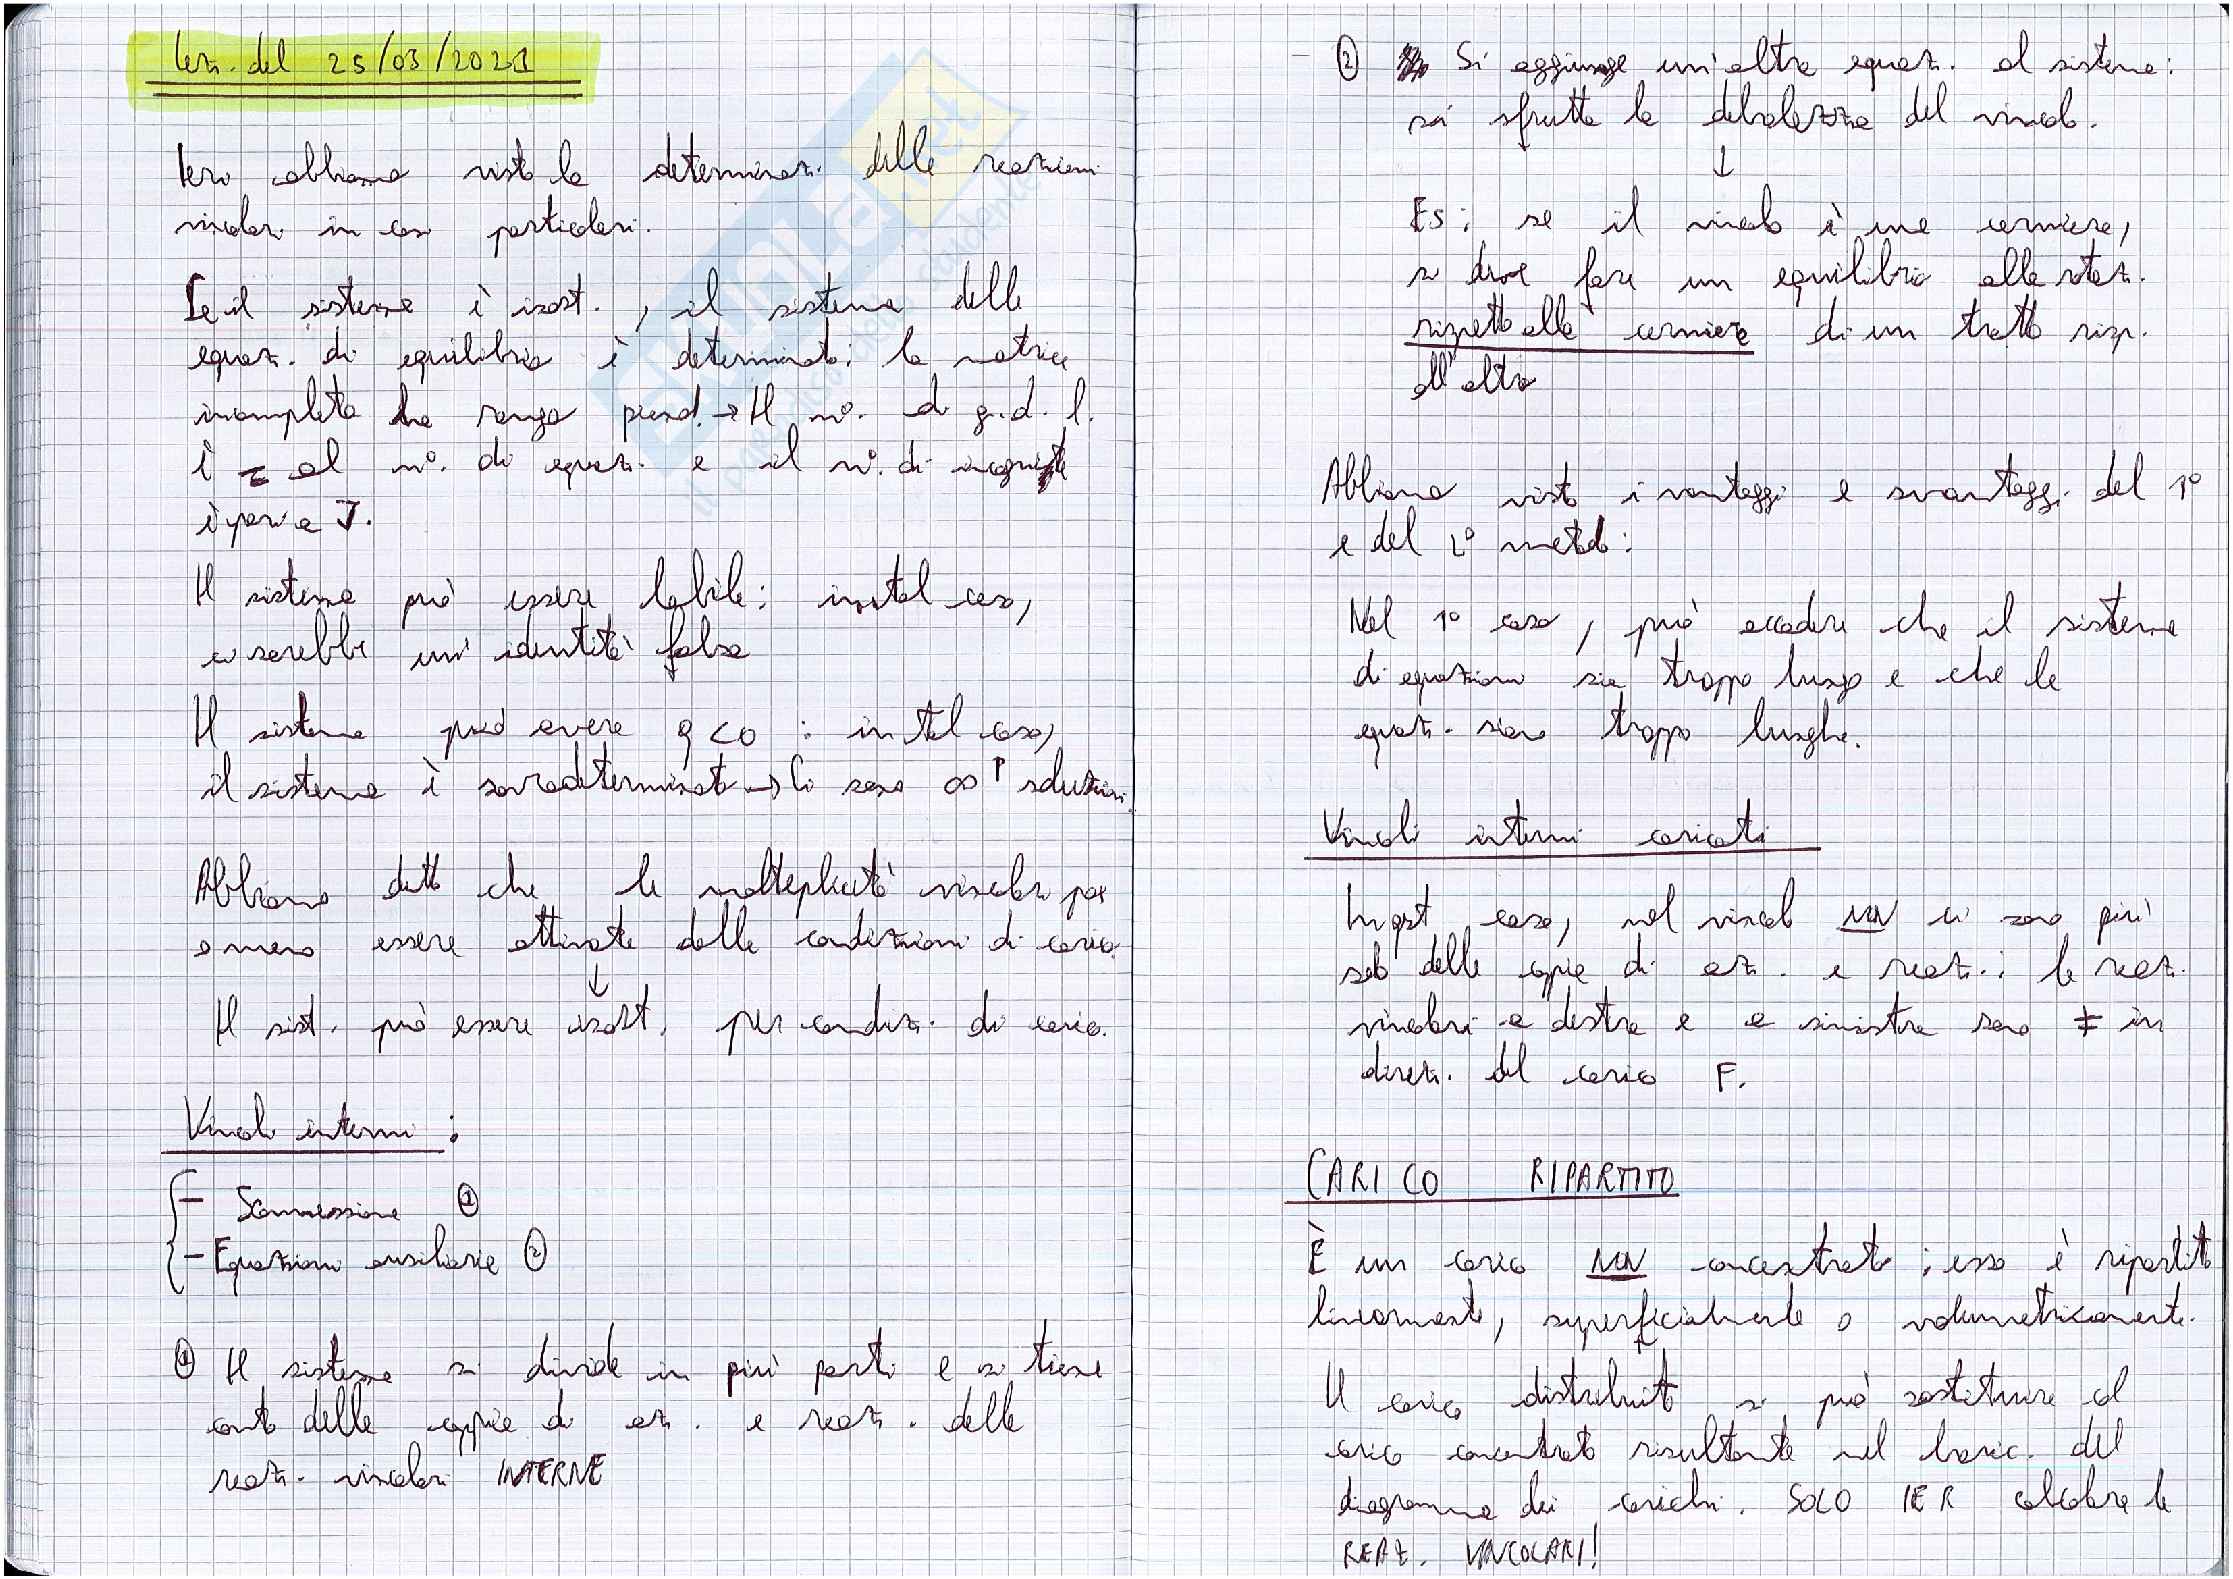 Lez. del 25/03/2021
Ieri abbiamo visto la determinaz. delle reazioni
vincolari in casi particolari.
Se il sistema è isost., il sistema delle
equaz. di equilibrio è determinato: la matrice
incompleta ha rango pieno. → Il n°. di g.d.l.
è = al n°. di equaz. e il n°. di incognite
è pari a
Il sistema può essere labile: in tal caso,
ci sarebbe un'identità falsa
Il sistema può avere g<0: in tal caso,
il sistema è sovradeterminato → Ci sono ∞ soluzioni.
Abbiamo detto che le molteplicità vincolari
o meno essere attivate dalle condizioni di carico.
↓
Il sist. può essere isost. per condiz. di carico.
Vincoli interni:
- Sconnessione ①
- Equazioni ausiliarie ②
① Il sistema si divide in più parti e si tiene
conto delle coppie di az. e reaz. delle
reaz. vincolari INTERNE
② Si aggiunge un'altra equaz. al sistema:
si sfrutta la debolezza del vincolo.
↓
Es: se il vincolo è una cerniera,
si deve fare un equilibrio alla rotaz.
rispetto alla cerniera di un tratto risp.
all'altro
Abbiamo visto i vantaggi e svantaggi del 1°
e del 2° metodo:
Nel 1° caso, può accadere che il sistema
di equazioni sia troppo lungo e che le
equaz. siano troppo lunghe.
Vincoli interni caricati
In qst caso, nel vincolo NON ci sono più
solo delle coppie di az. e reaz.: le reaz.
vincolari a destra e a sinistra sono ≠ in
direz. del carico F.
CARICO RIPARTITO
È un carico NON concentrato; esso è ripartito
linearmente, superficialmente o volumetricamente.
Il carico distribuito si può sostituire al
carico concentrato risultante nel baric. del
diagramma dei carichi. SOLO PER calcolare le
REAZ. VINCOLARI!